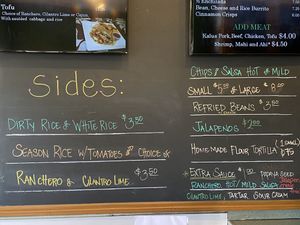 Tofu
Choice of Ranchero, Cilantro Lime or Cajun.
With sauteed cabbage and rice
Bean, Cheese and Rice Burrito
Cinnamon Crisps
ADD MEAT
Kalua Pork, Beef, Chicken, Tofu $4.00
Shrimp, Mahi and Ahi* $4.50
Sides:
DIRTY RICE & WHITE RICE $3.50
SEASON RICE W/TOMATOES & CHOICE OF
RANCHERO & CILANTRO LIME $3.50
CHIPS & SALSA HOT OR MILD
SMALL $5.00 & LARGE $8.00
REFRIED BEANS $3.50
JALAPENOS $2.00
HOMEMADE FLOUR TORTILLA
EXTRA SAUCE $1.00 PAPAYA SEED
RANCHERO, HOT/MILD SALSA
CILANTRO LIME, TARTAR SOUR CREAM